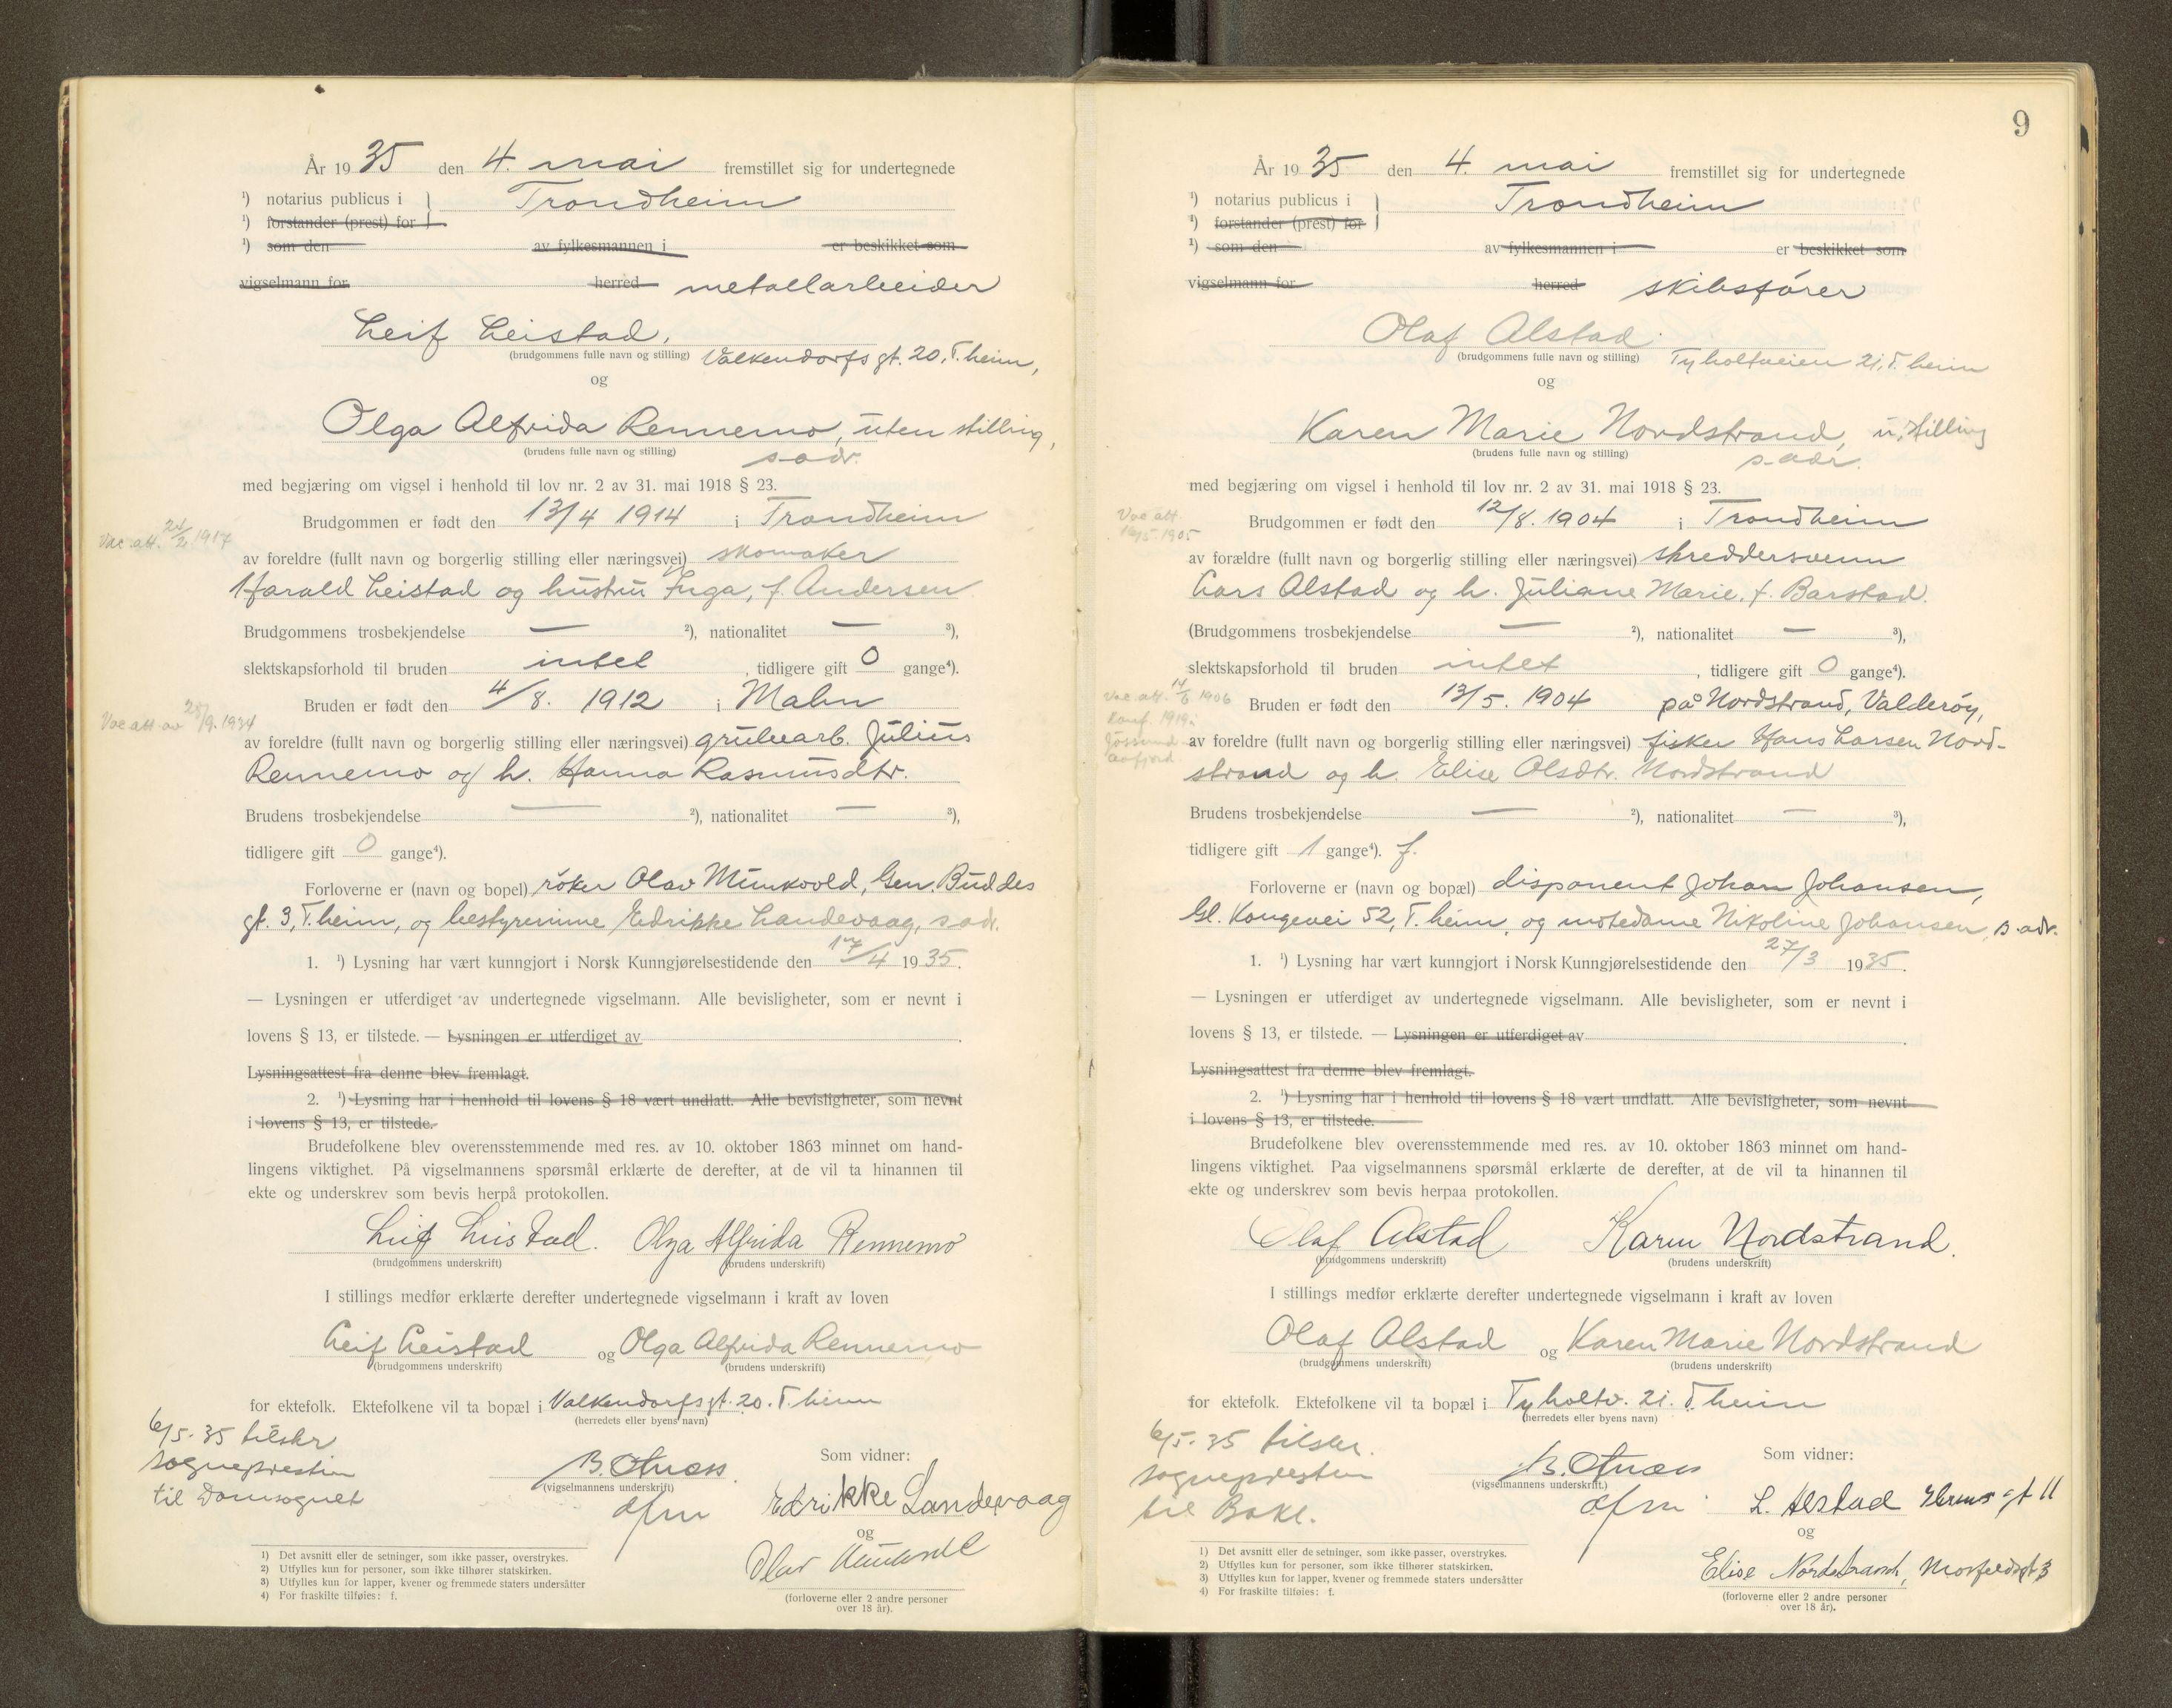 År 1935 den 4. mai fremstillet sig for undertegnede
¹) notarius publicus i } Trondheim
¹) forstander (prest) for
¹) som den av fylkesmannen i er beskikket som
vigselmann for herred metallarbeider
Leif Leistad,
(brudgommens fulle navn og stilling) Valkendorfsgt. 20, T.heim,
og
Olga Alfrida Rennemo, uten stilling,
(brudens fulle navn og stilling) s. adr.
med begjæring om vigsel i henhold til lov nr. 2 av 31. mai 1918 § 23.
Brudgommen er født den 13/4 1914 i Trondheim
Vac. att. 1917
av foreldre (fullt navn og borgerlig stilling eller næringsvei) skomaker
Harald Leistad og hustru Inga, f. Andersen
Brudgommens trosbekjendelse — ²), nationalitet — ³),
slektskapsforhold til bruden intet, tidligere gift 0 gange⁴).
Bruden er født den 4/8. 1912 i Malm
Vac att av /9. 1934
av foreldre (fullt navn og borgerlig stilling eller næringsvei) grubearb. Julius
Rennemo og h. Hanna Rasmusdtr.
Brudens trosbekjendelse — ²), nationalitet — ³),
tidligere gift 0 gange⁴).
Forloverne er (navn og bopel) røker Olav Munkvold, Gen. Buddes
gt. 3, T.heim, og bestyrerinne Edrikke Landevaag, s. adr.
1. ¹) Lysning har vært kunngjort i Norsk Kunngjørelsestidende den 17/4 1935.
— Lysningen er utferdiget av undertegnede vigselmann. Alle bevisligheter, som er nevnt i
lovens § 13, er tilstede. — Lysningen er utferdiget av .
Lysningsattest fra denne blev fremlagt.
2. ¹) Lysning har i henhold til lovens § 18 vært undlatt. Alle bevisligheter, som nevnt
i lovens § 13, er tilstede.
Brudefolkene blev overensstemmende med res. av 10. oktober 1863 minnet om hand-
lingens viktighet. På vigselmannens spørsmål erklærte de derefter, at de vil ta hinannen til
ekte og underskrev som bevis herpå protokollen.
Leif Leistad. Olga Alfrida Rennemo
(brudgommens underskrift) (brudens underskrift)
I stillings medfør erklærte derefter undertegnede vigselmann i kraft av loven
Leif Leistad og Olga Alfrida Rennemo
(brudgommens underskrift) (brudens underskrift)
for ektefolk. Ektefolkene vil ta bopæl i Valkendorfsgt. 20. T.heim
(herredets eller byens navn)
6/5-35 tilskr
sognepresten
til Domsognet
Som vidner:
B.
(vigselmannens underskrift)
Edrikke Landevaag
og
Olav Munkvold
(forloverne eller 2 andre personer
over 18 år).
1) Det avsnitt eller de setninger, som ikke passer, overstrykes.
2) Utfylles kun for personer, som ikke tilhører statskirken.
3) Utfylles kun for lapper, kvener og fremmede staters undersåtter
4) For fraskilte tilføies: f.
9
År 1935 den 4. mai fremstillet sig for undertegnede
¹) notarius publicus i } Trondheim
¹) forstander (prest) for
¹) som den av fylkesmannen i er beskikket som
vigselmann for herred skibsfører
Olaf Alstad
(brudgommens fulle navn og stilling) Tyholtveien 21, T.heim
og
Karen Marie Nordstrand, u. stilling
(brudens fulle navn og stilling) s. adr.
med begjæring om vigsel i henhold til lov nr. 2 av 31. mai 1918 § 23.
Vac att.
16/5.1905
Brudgommen er født den 12/8. 1904 i Trondheim
av forældre (fullt navn og borgerlig stilling eller næringsvei) skreddersvenn
Lars Alstad og h. Juliane Marie, f. Barstad.
(Brudgommens trosbekjendelse — ²), nationalitet — ³),
slektskapsforhold til bruden intet, tidligere gift 0 gange⁴).
Vac att. 14/6 1906
konf. 1919 i
Jøssund
Aafjord
Bruden er født den 13/5. 1904 på Nordstrand, Valderøy,
av foreldre (fullt navn og borgerlig stilling eller næringsvei) fisker Hans Larsen Nord-
strand og h. Elise Olsdtr. Nordstrand
Brudens trosbekjendelse — ²), nationalitet — ³),
tidligere gift 1 gange⁴). f.
Forloverne er (navn og bopæl) disponent Johan Johansen,
Gl. Kongevei 52, T.heim, og motedame Nikoline Johansen, s. adr.
1. ¹) Lysning har vært kunngjort i Norsk Kunngjørelsestidende den 27/3 1935.
— Lysningen er utferdiget av undertegnede vigselmann. Alle bevisligheter, som er nevnt i
lovens § 13, er tilstede. — Lysningen er utferdiget av .
Lysningsattest fra denne blev fremlagt.
2. ¹) Lysning har i henhold til lovens § 18 vært undlatt. Alle bevisligheter, som nevnt
i lovens § 13, er tilstede.
Brudefolkene blev overensstemmende med res. av 10. oktober 1863 minnet om hand-
lingens viktighet. Paa vigselmannens spørsmål erklærte de derefter, at de vil ta hinannen til
ekte og underskrev som bevis herpaa protokollen.
Olaf Alstad Karen Nordstrand.
(brudgommens underskrift) (brudens underskrift)
I stillings medfør erklærte derefter undertegnede vigselmann i kraft av loven
Olaf Alstad og Karen Marie Nordstrand
(brudgommens underskrift) (brudens underskrift)
for ektefolk. Ektefolkene vil ta bopæl i Tyholtv. 21. T.heim
(herredets eller byens navn)
6/5-35 tilskr.
sognepresten
til Bakl.
Som vidner:
B.
(vigselmannens underskrift.)
L. Alstad
og
Elise Nordstrand,
(forloverne eller 2 andre personer
over 18 år).
1) Det avsnitt eller de setninger, som ikke passer, overstrykes.
2) Utfylles kun for personer, som ikke tilhører statskirken.
3) Utfylles kun for lapper, kvener og fremmede staters undersåtter
4) For fraskilte tilføies: f.